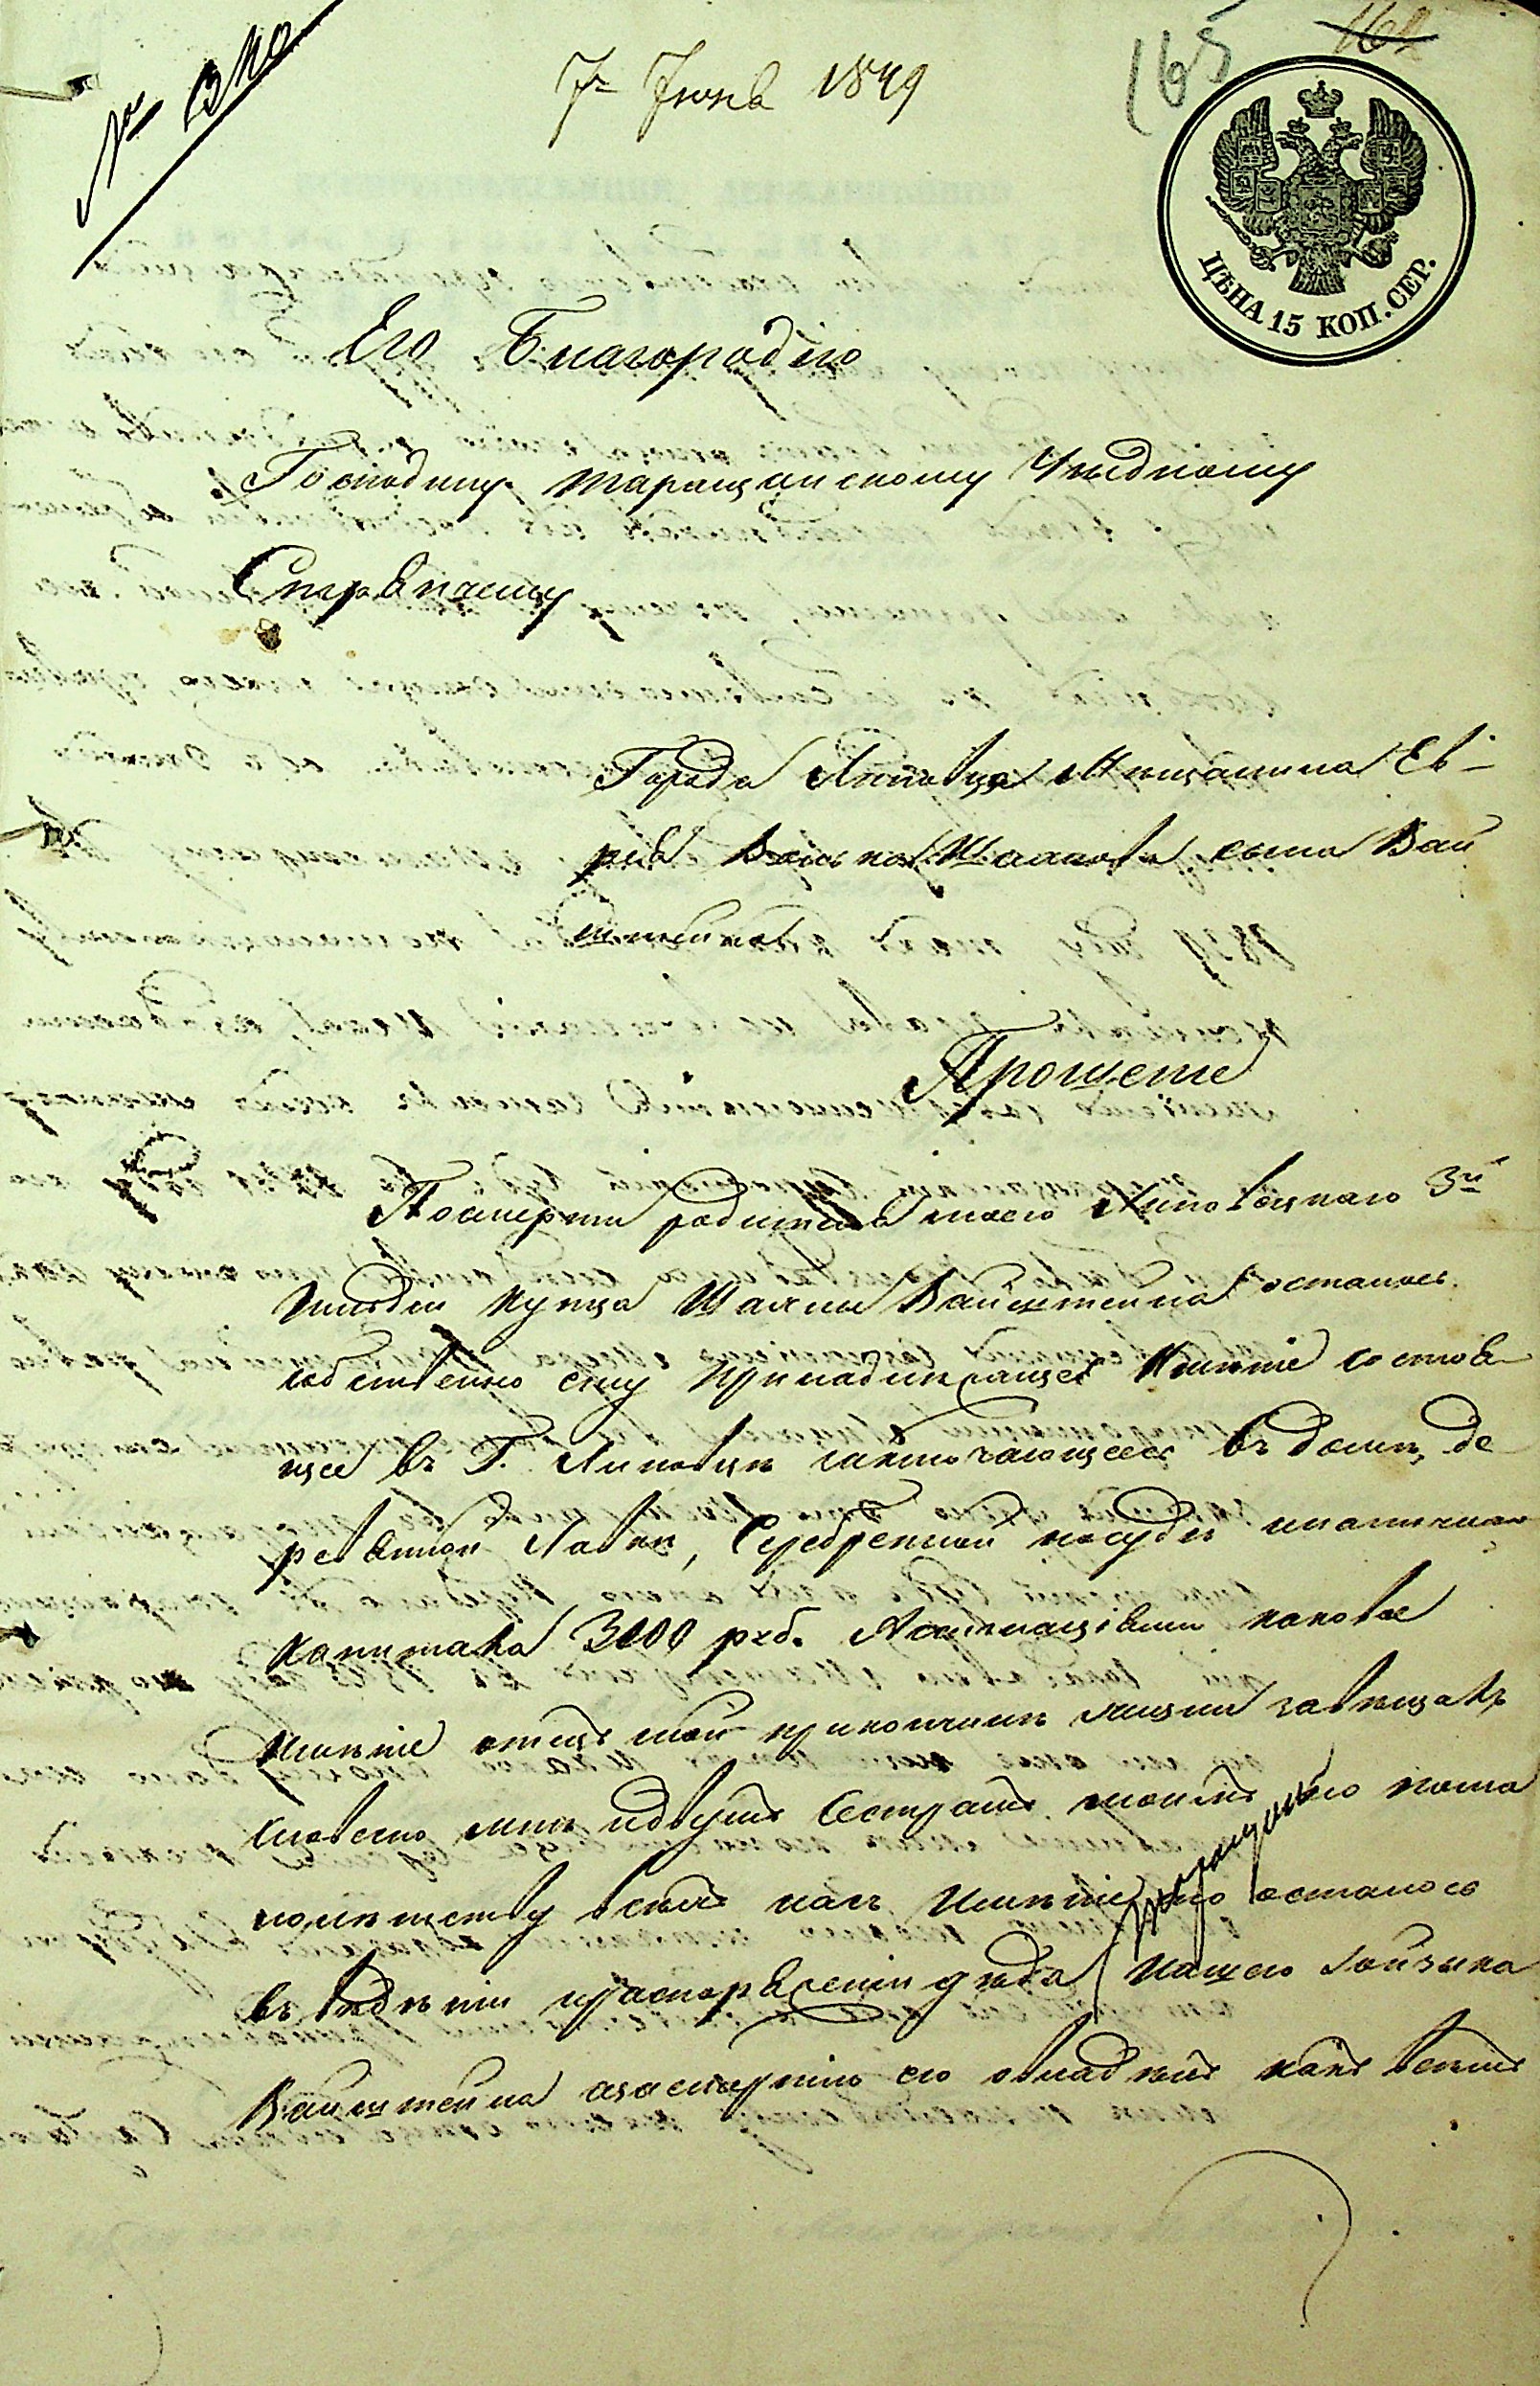 № 1340
7 Июня 1849
165
164
ЦѢНА 15 КОП. СЕР.
Его Благородію
Господину Таращанскому Уѣздному
Стряпчему
Города Липовца Мѣщанина Ев-
рея Волька Шаинова сына Вай
нштейна
Прошеніе
Посмерти родителя моего Липовецкаго 3й
гильдіи купца Шаіны Вайнштейна осталось
собственно ему принадлежащее Имѣніе состоя
щее въ Г. Липовцѣ заключающееся въ домѣ, де
ревянной Лавки, Серебренной посуды иналичнаго
капитала 3000 руб. Ассигнаціями каковое
Имѣніе отецъ мой прикончинѣ жизни завѣщалъ
словесно мнѣ идвумъ Сестрамъ моимъ но пома
лолѣтству всѣхъ насъ Имѣніе то осталось
въ вѣденіи ираспоряженіи дѣда нашего Лойзыка
Вайнштейна апосмертію его овладѣлъ какъ всѣмъ